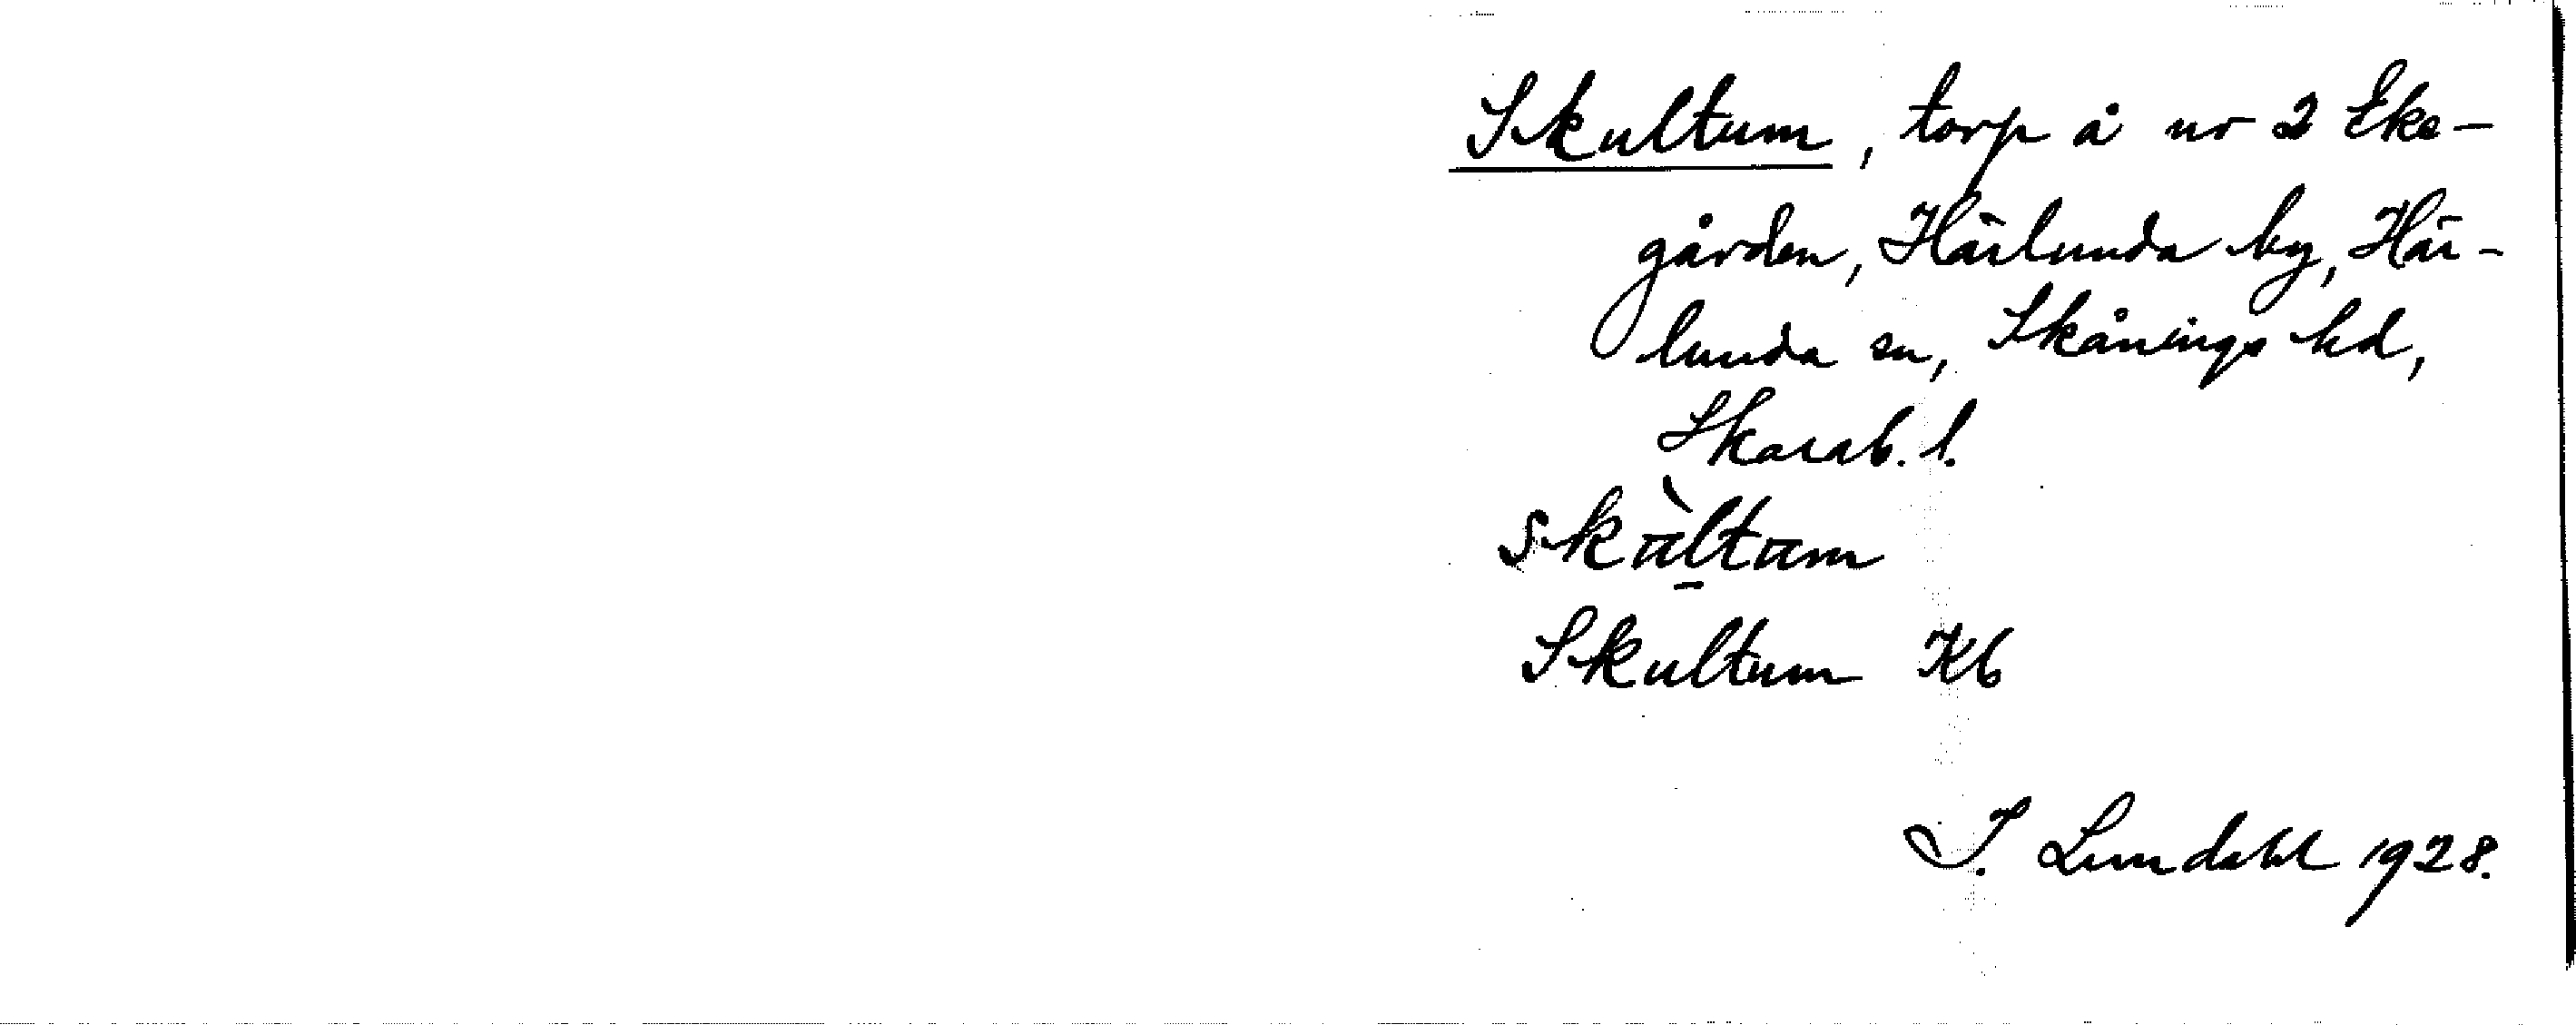 Skultum, torp å nr 2 Eke-
gården, Härlunda by, Här-
lunda sn, Skånings hd,
Skarab. l.
skàltam
Skultum Kb
I. Lundahl 1928.